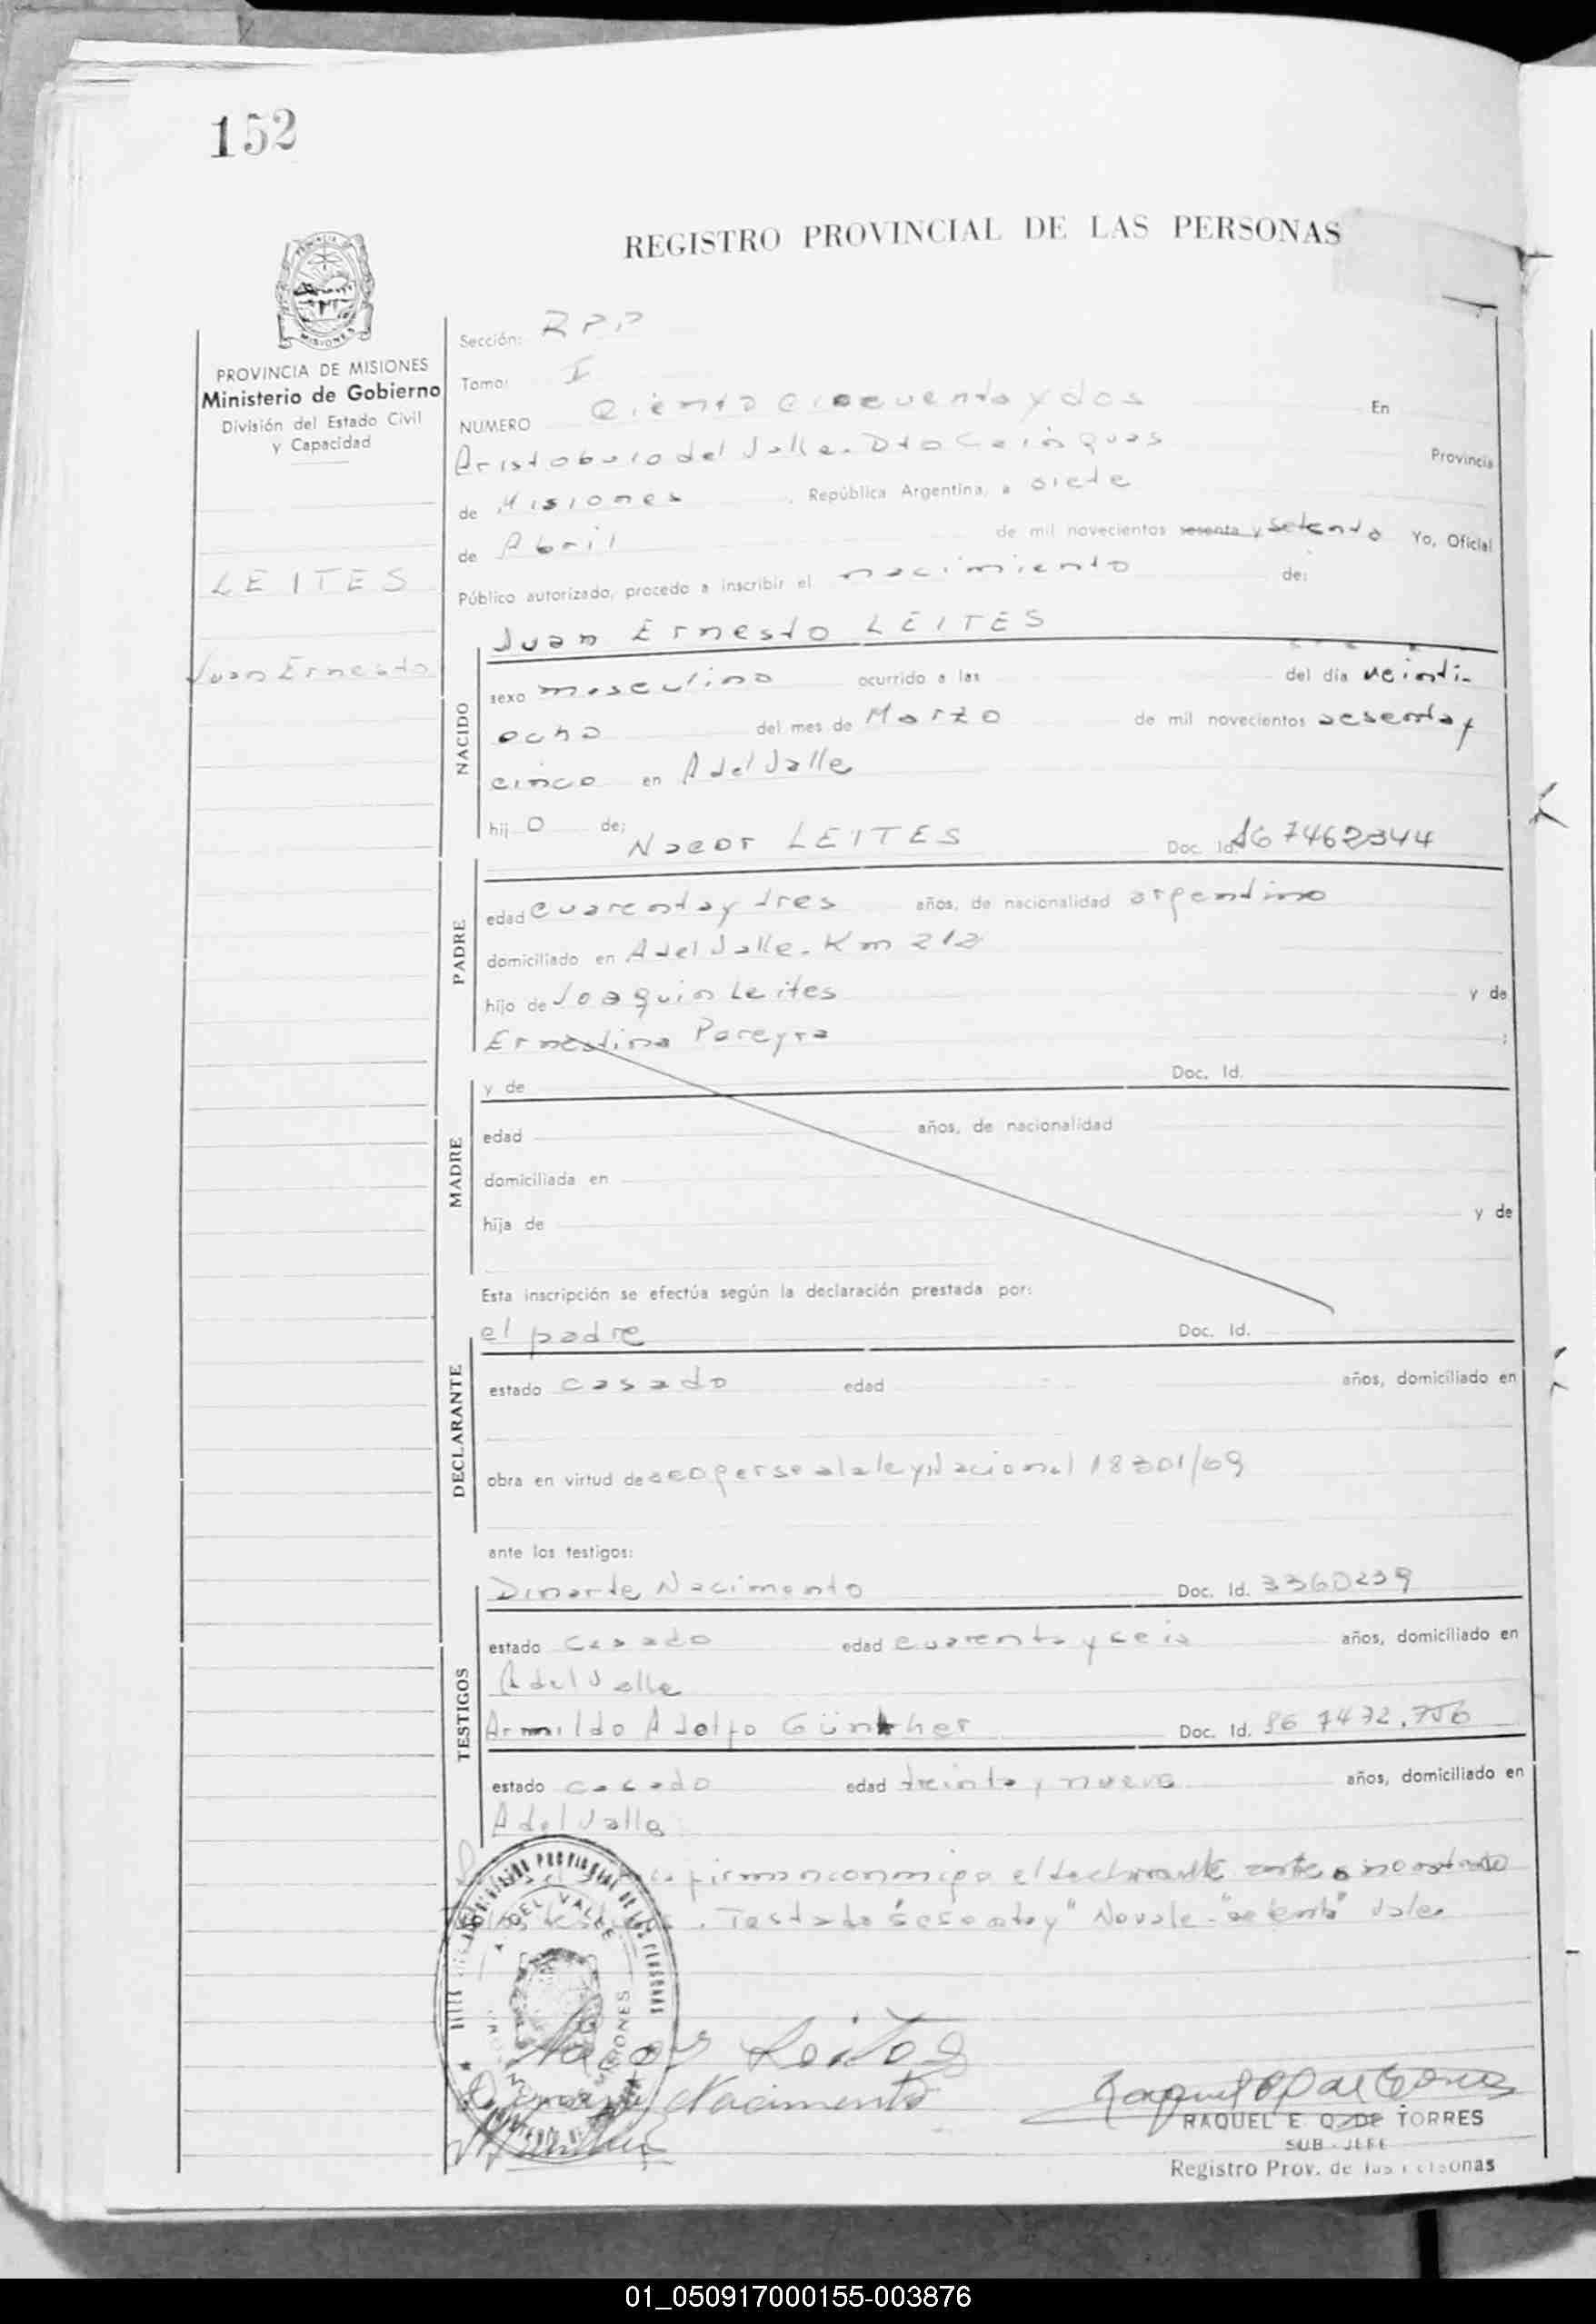 152
REGISTRO PROVINCIAL DE LAS PERSONAS
MISIONES
PROVINCIA DE MISIONES
Ministerio de Gobierno
División del Estado Civil
y Capacidad
LEITES
Juan Ernesto
Sección: RPP
Tomo: I
NUMERO Ciento cincuenta y dos En
Aristobulo del Valle. Dto Cainguas Provincia
de Misiones, República Argentina, a siete
de Abril de mil novecientos sesenta y setenta Yo, Oficial
Público autorizado, procedo a inscribir el nacimiento de:
Juan Ernesto LEITES
NACIDO
sexo masculino ocurrido a las del día veinti-
ocho del mes de Marzo de mil novecientos sesenta y
cinco en A del Valle
hijo de; Nacor LEITES Doc. Id. 7462344
PADRE
edad cuarenta y tres años, de nacionalidad argentino
domiciliado en A del Valle. Km 212
hijo de Joaquin Leites y de
Ernestina Pereyra ;
MADRE
y de Doc. Id.
edad años, de nacionalidad
domiciliada en
hija de y de
Esta inscripción se efectúa según la declaración prestada por:
el padre Doc. Id.
DECLARANTE
estado casado edad años, domiciliado en
obra en virtud de acogerse a la ley Nacional 18301/69
ante los testigos:
TESTIGOS
Dinarte Nacimento Doc. Id. 3360239
estado casado edad cuarenta y seis años, domiciliado en
A del Valle
Armildo Adolfo Günther Doc. Id. 7472.756
estado casado edad treinta y nueve años, domiciliado en
A del Valle
firman conmigo el declarante
testigos. Testado "sesenta y" No vale. "setenta" Vale.
A. DEL VALLE
MISIONES
Nacor Leites
Nacimento
RAQUEL E. O. DE TORRES
SUB-JEFE
Registro Prov. de las Personas
01_050917000155-003876